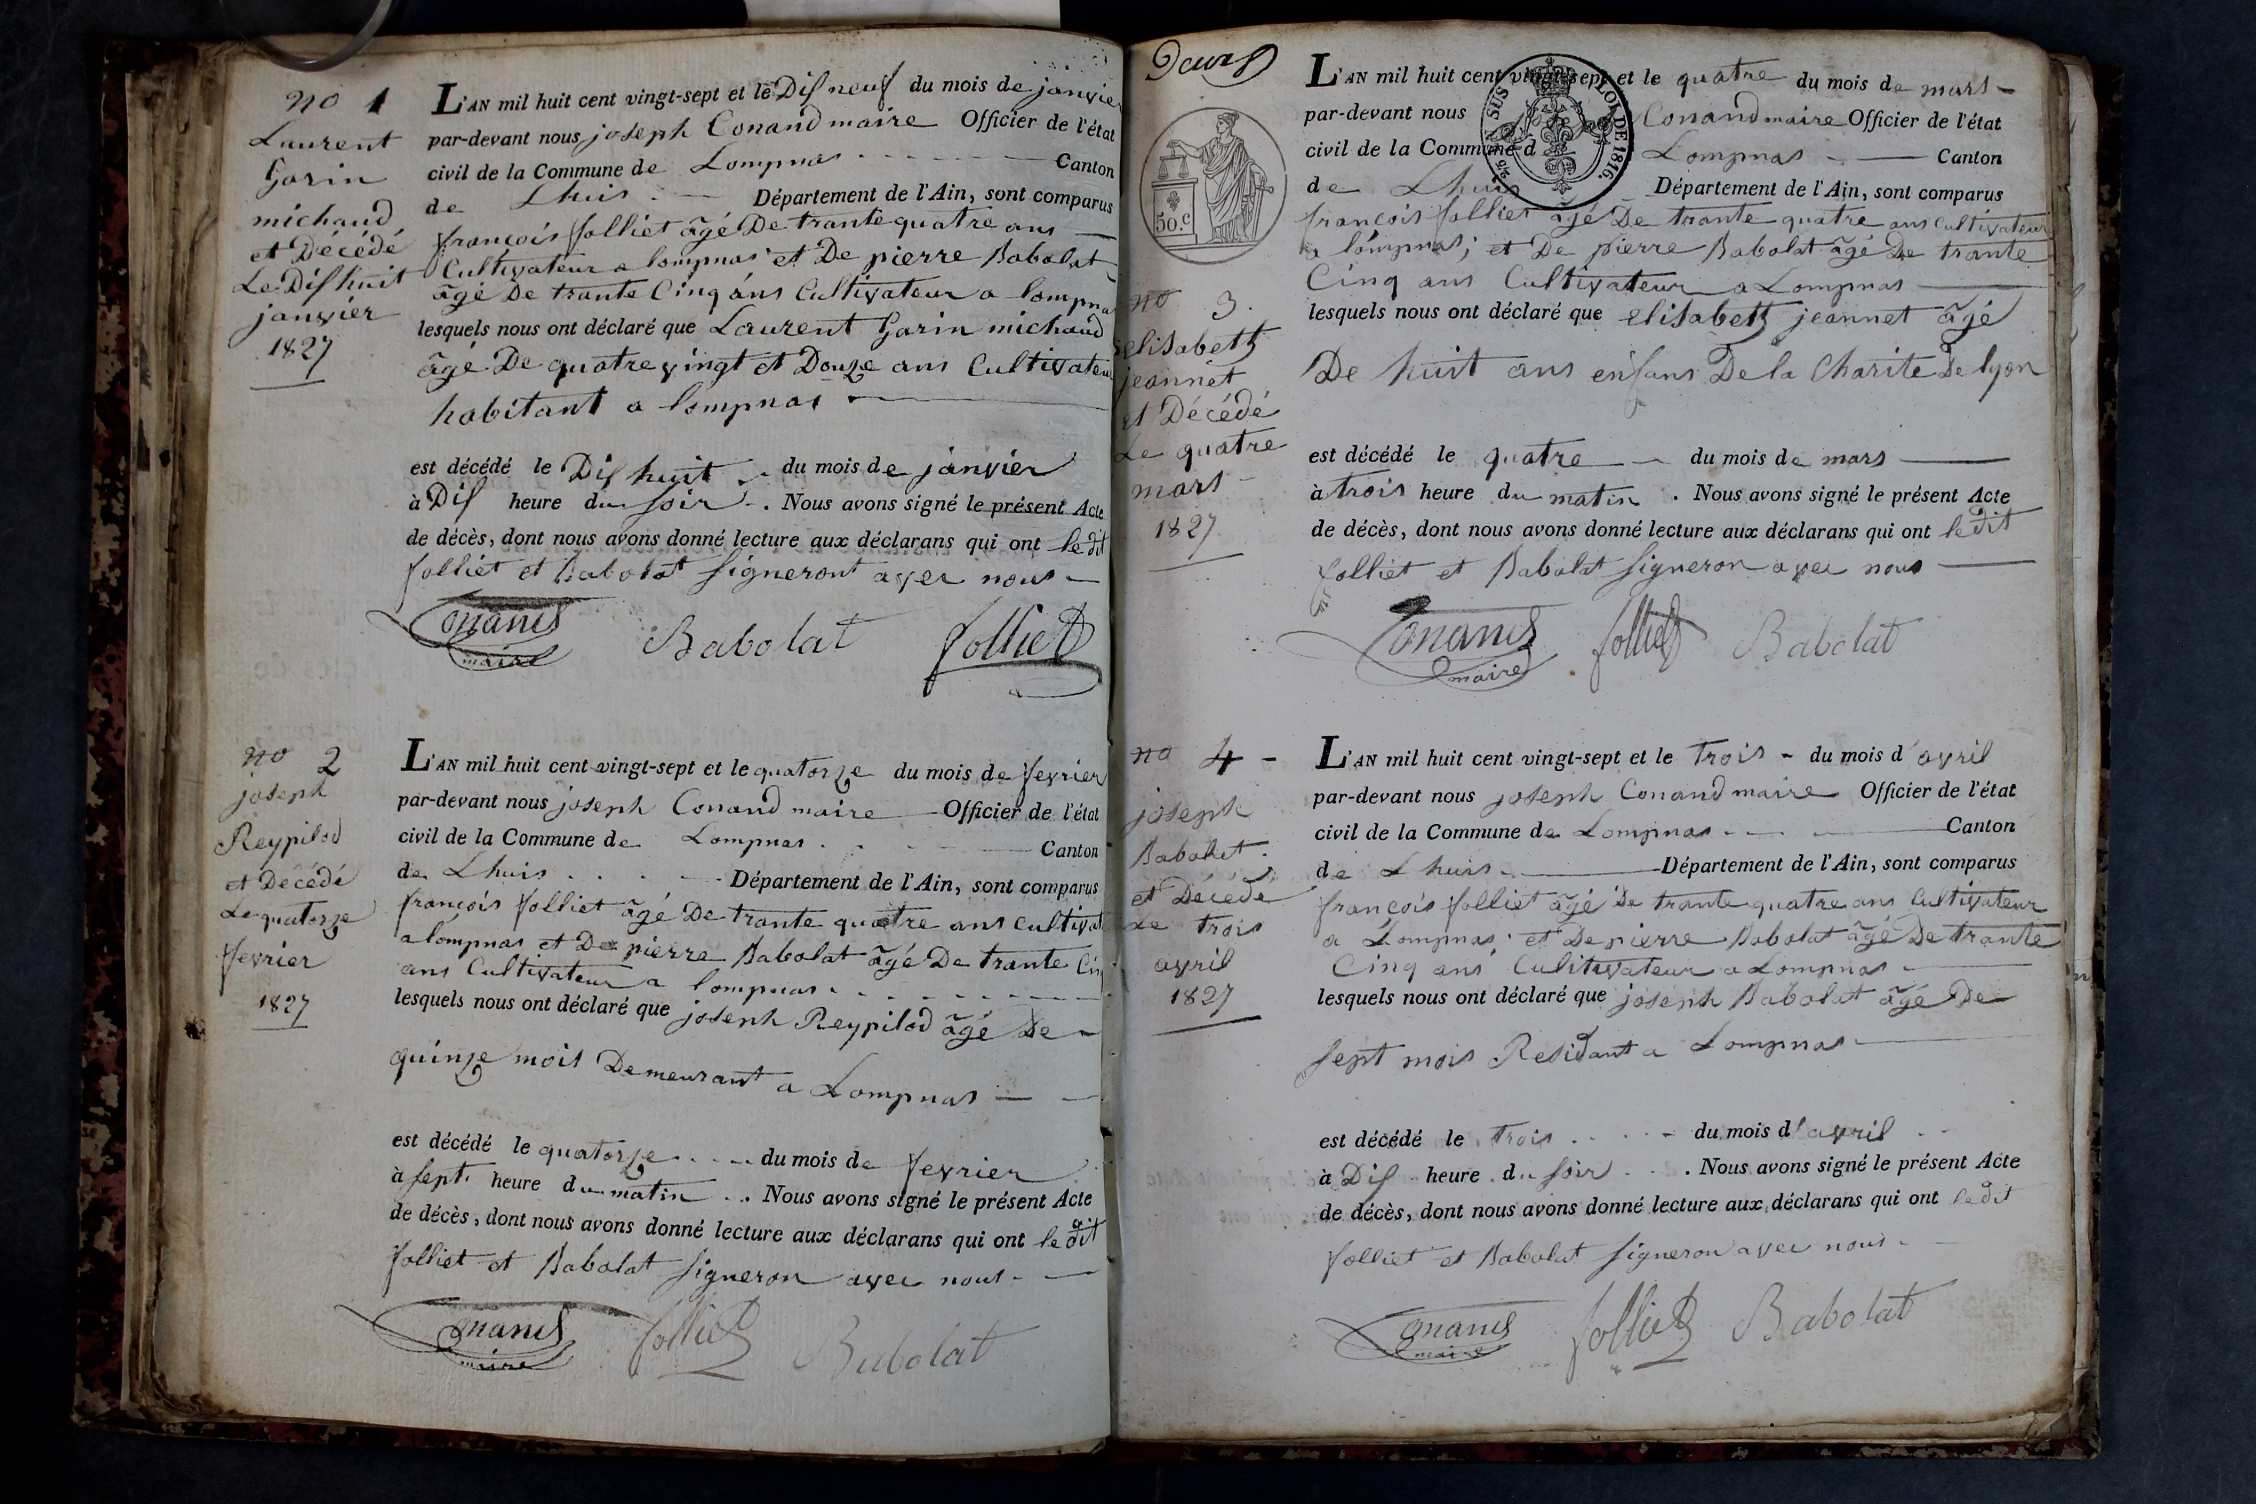 no 1
Laurent
Garin
michaud
et Décédé
Le Dishuit
janvier
1827
L'AN mil huit cent vingt-sept et le Dis neuf du mois de janvier
par-devant nous joseph Conand maire Officier de l'état
civil de la Commune de Lompnas Canton
de Lhuis Département de l'Ain, sont comparus
françois folliet âgé De trante quatre ans
Cultivateur a lompnas et De pierre Babolat
âgé De trante Cinq ans Cultivateur a lompnas
lesquels nous ont déclaré que Laurent Garin michaud
âgé De quatre vingt et Douze ans Cultivateur
habitant a lompnas
est décédé le Dis huit du mois de janvier
à Dis heure du soir. Nous avons signé le présent Acte
de décès, dont nous avons donné lecture aux déclarans qui ont le dit
folliet et Babolat signeront avec nous
Conand
maire
Babolat
folliet
no 2
joseph
Reypilod
et Décédé
Le quatorze
fevrier
1827
L'AN mil huit cent vingt-sept et le quatorze du mois de fevrier
par-devant nous joseph Conand maire Officier de l'état
civil de la Commune de Lompnas Canton
de Lhuis Département de l'Ain, sont comparus
françois folliet âgé De trante quatre ans cultivat
a lompnas et De pierre Babolat âgé De trante Cin
ans Cultivateur a lompnas
lesquels nous ont déclaré que joseph Reypilod âgé De
quinze mois Demeurant a Lompnas
est décédé le quatorze du mois de fevrier
à sept heure du matin. Nous avons signé le présent Acte
de décès, dont nous avons donné lecture aux déclarans qui ont le dit
folliet et Babolat signeron avec nous
Conand
maire
folliet
Babolat
50.c
no 3.
elisabeth
jeannet
et Décédé
Le quatre
mars
1827
L'AN mil huit cent vingt-sept et le quatre du mois de mars
par-devant nous Conand maire Officier de l'état
civil de la Commune d Lompnas Canton
de Lhuis Département de l'Ain, sont comparus
SUS LOI DE 1816.
françois folliet âgé De trante quatre ans cultivateur
a lompnas; et De pierre Babolat âgé De trante
Cinq ans Cultivateur a Lompnas
lesquels nous ont déclaré que elisabeth jeannet âgé
De huit ans enfans De la Charite De lyon
est décédé le quatre du mois de mars
à trois heure du matin. Nous avons signé le présent Acte
de décès, dont nous avons donné lecture aux déclarans qui ont le dit
folliet et Babolat signeron avec nous
Conand
maire
folliet
Babolat
no 4
joseph
Babolat
et Décédé
Le trois
avril
1827
L'AN mil huit cent vingt-sept et le trois du mois d'avril
par-devant nous joseph Conand maire Officier de l'état
civil de la Commune de Lompnas Canton
de Lhuis Département de l'Ain, sont comparus
françois folliet âgé De trante quatre ans Cultivateur
a Lompnas et De pierre Babolat âgé De trante
Cinq ans Culitivateur a Lompnas
lesquels nous ont déclaré que joseph Babolat âgé De
sept mois Residant a Lompnas
est décédé le trois du mois d'avril
à Dis heure du soir. Nous avons signé le présent Acte
de décès, dont nous avons donné lecture aux déclarans qui ont le dit
folliet et Babolat signeron avec nous
Conand
maire
folliet
Babolat